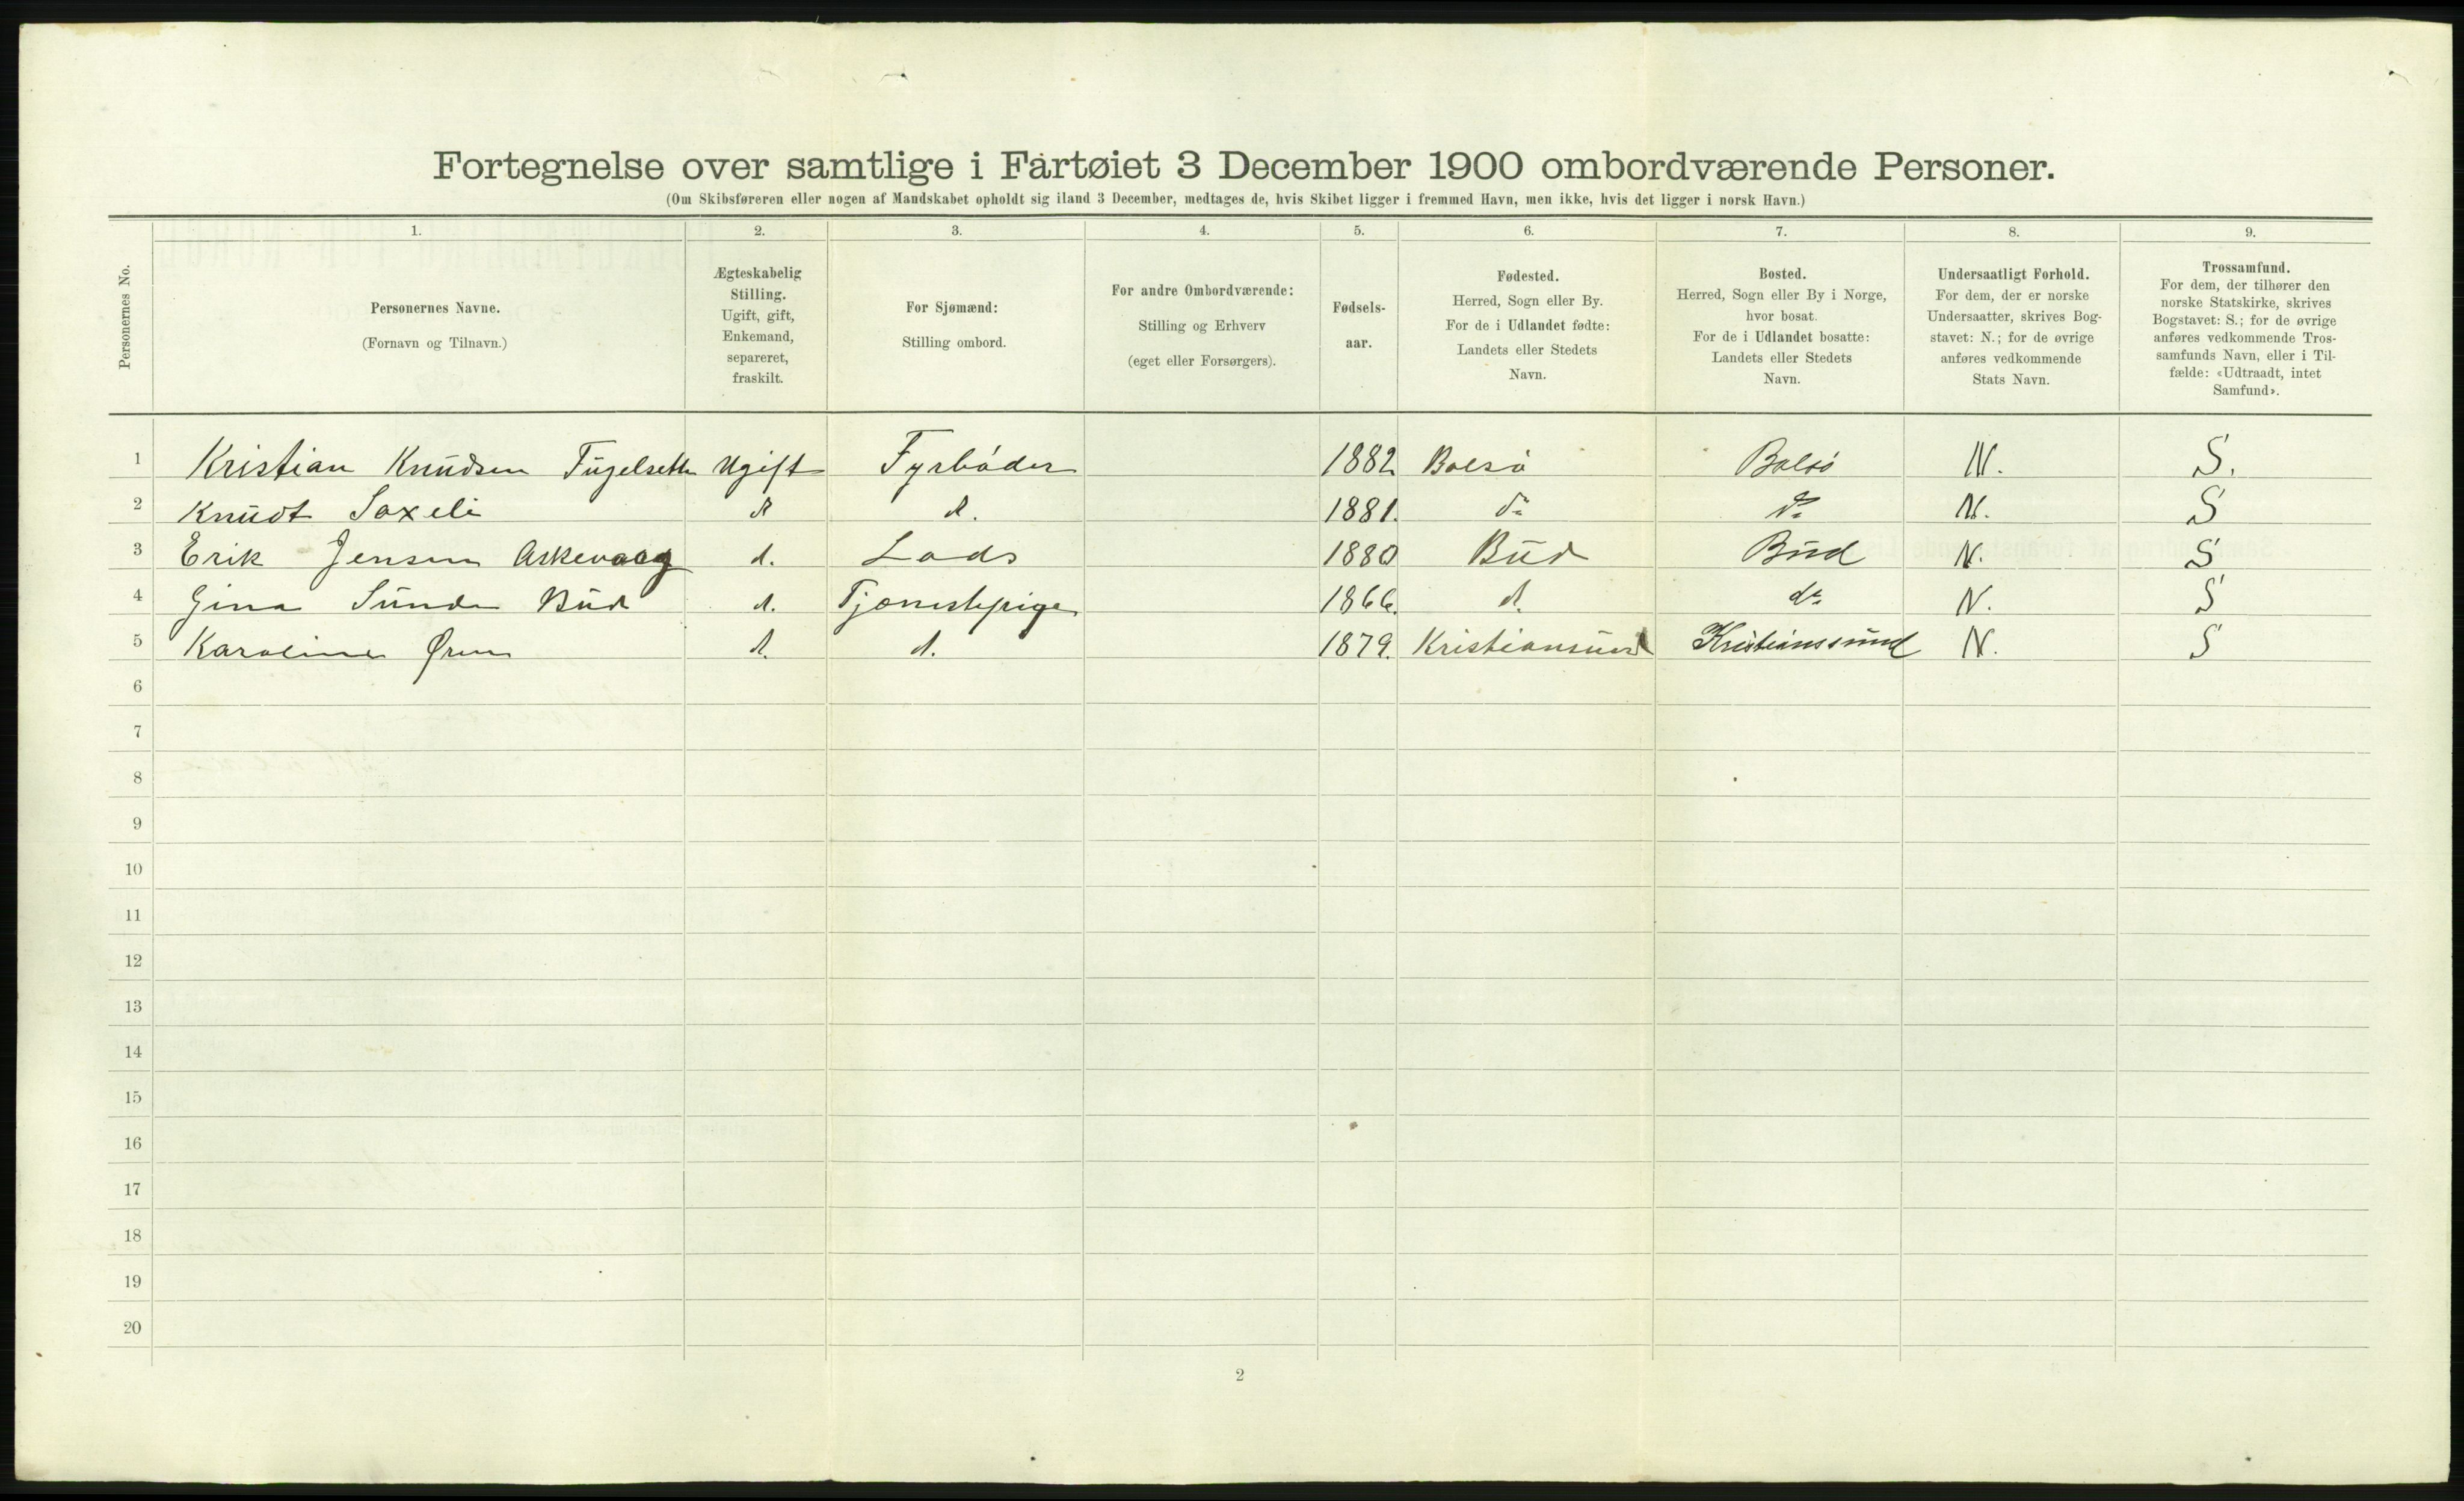 Fortegnelse over samtlige i Fartøiet 3 December 1900 ombordværende Personer.
(Om Skibsføreren eller nogen af Mandskabet opholdt sig iland 3 December, medtages de, hvis Skibet ligger i fremmed Havn, men ikke, hvis det ligger i norsk Havn.)
Personernes No.
1. 2. 3. 4. 5. 6. 7. 8. 9.
Personernes Navne.
(Fornavn og Tilnavn.)
Ægteskabelig
Stilling.
Ugift, gift,
Enkemand,
separeret,
fraskilt.
For Sjømænd:
Stilling ombord.
For andre Ombordværende:
Stilling og Erhverv
(eget eller Forsørgers).
Fødsels-
aar.
Fødested.
Herred, Sogn eller By.
For de i Udlandet fødte:
Landets eller Stedets
Navn.
Bosted.
Herred, Sogn eller By i Norge,
hvor bosat.
For de i Udlandet bosatte:
Landets eller Stedets
Navn.
Undersaatligt Forhold.
For dem, der er norske
Undersaatter, skrives Bog-
stavet: N.; for de øvrige
anføres vedkommende
Stats Navn.
Trossamfund.
For dem, der tilhører den
norske Statskirke, skrives
Bogstavet: S.; for de øvrige
anføres vedkommende Tros-
samfunds Navn, eller i Til-
fælde: «Udtraadt, intet
Samfund».
1 Kristian Knudsen Fugelseth Ugift Fyrbøder 1882 Bolsø Bolsø N. S.
2 Knudt Saxeli d d. 1881. do do N. S
3 Erik Jensen Askevaag d. Lods 1880 Bud Bud N. S
4 Gina Sunde Bud d. Tjenestepige 1866. d. do N. S
5 Karoline d. d. 1879. Kristiansund Kristianssund N. S
6
7
8
9
10
11
12
13
14
15
16
17
18
19
20
2